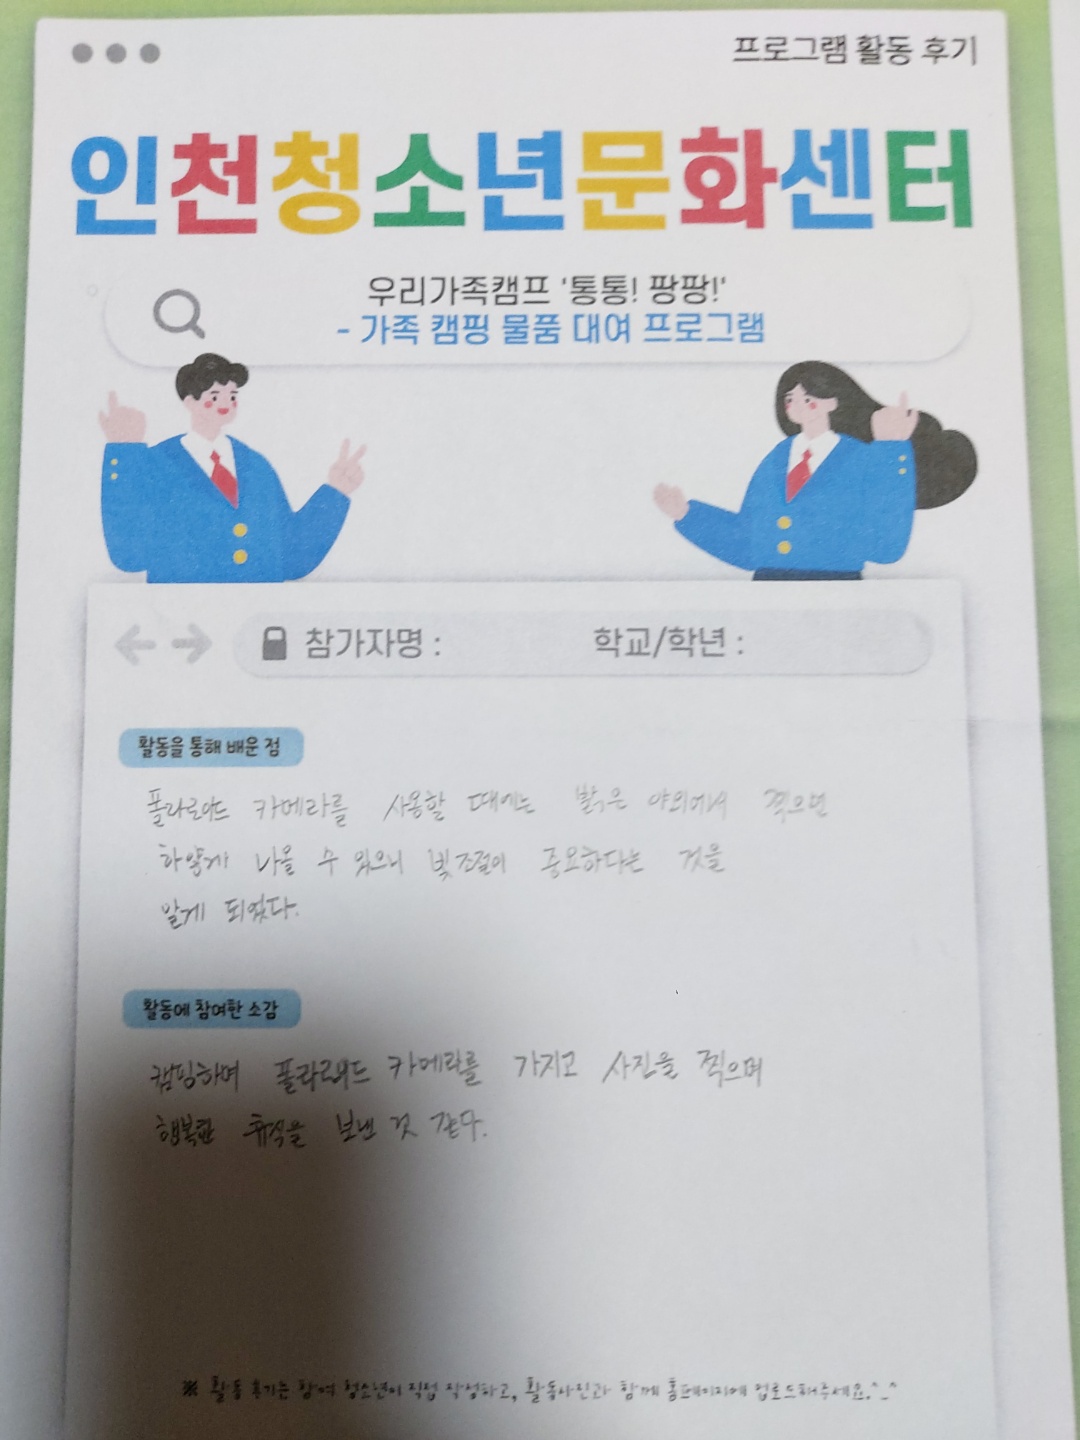 프로그램 활동 후기
인천청소년문화센터
우리가족캠프 '통통! 팡팡!'
- 가족 캠핑 물품 대여 프로그램
참가자명 : 학교/학년 :
활동을 통해 배운 점
폴라로이드 카메라를 사용할 때에는 밝은 야외에서 찍으면
하얗게 나올 수 있으니 빛조절이 중요하다는 것을
알게 되었다.
활동에 참여한 소감
캠핑하며 폴라로이드 카메라를 가지고 사진을 찍으며
행복한 휴식을 보낸 것 같다.
※ 활동 후기는 참여 청소년이 직접 작성하고, 활동사진과 함께 홈페이지에 업로드해주세요.^_^